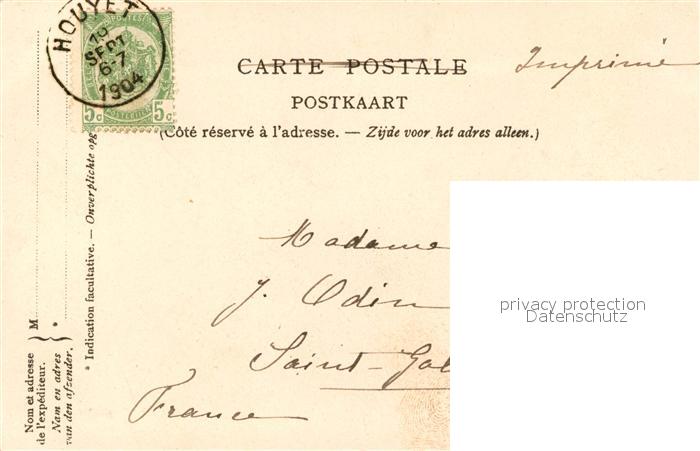 HOUYET
19
SEPT
6-7
1904
POSTES
5c 5c
CARTE POSTALE
Imprimé
POSTKAART
(Côté réservé à l'adresse. — Zijde voor het adres alleen.)
Madame
J. Odin
Saint-Gal
France
privacy protection
Datenschutz
Nom et adresse
de l'expéditeur.
Nam en adres
van den afzender.
M
*
* Indication facultative. — Onverplichte opg